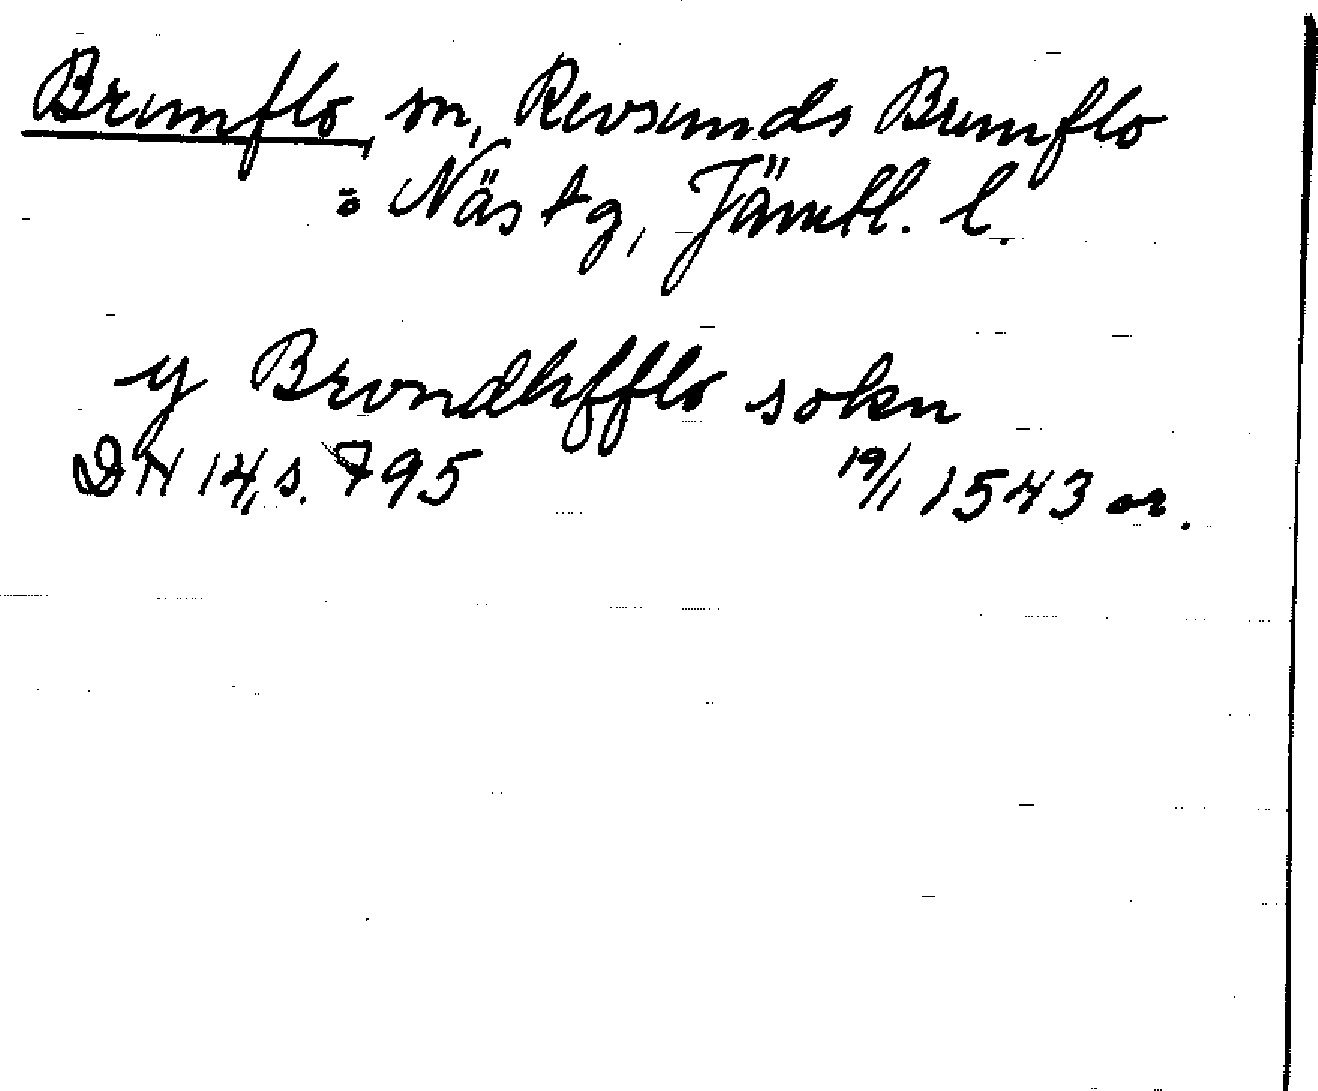 Brunflo, sn, Revsunds Brunflo
o Näs tg, Jämtl. l.
y Brondhfflo sokn
DN 14, s. 795 19/1 1543 or.